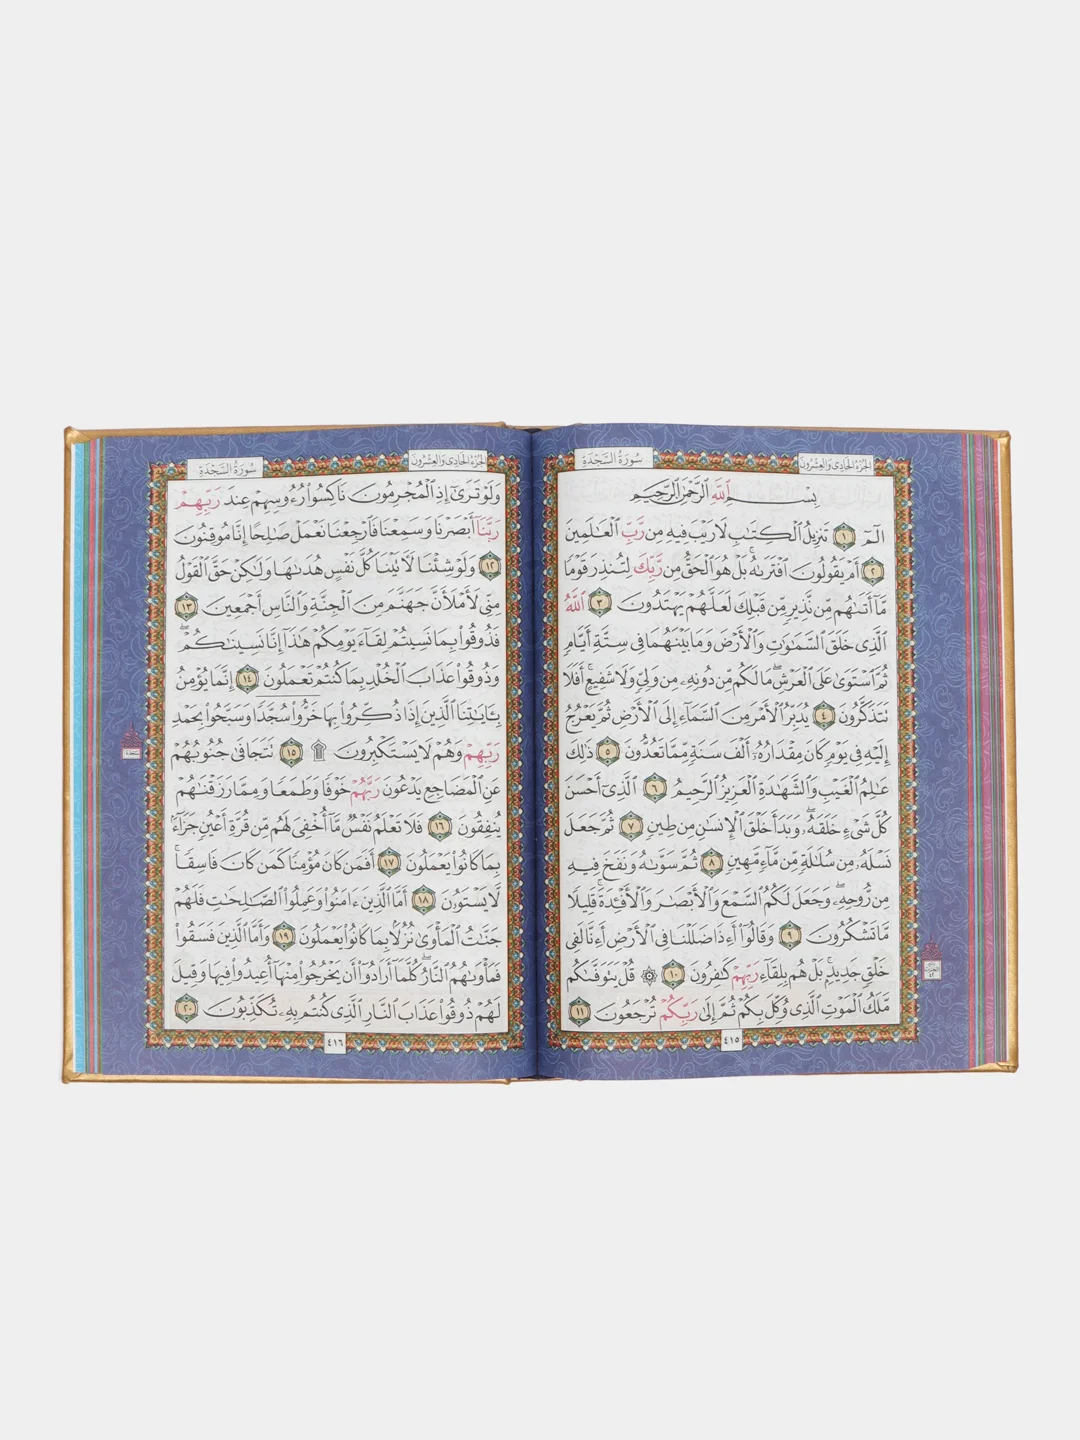 الجزء الحادي والعشرون
سورة السجدة
بِسْمِ ٱللَّهِ ٱلرَّحْمَٰنِ ٱلرَّحِيمِ
الٓمٓ ١ تَنزِيلُ ٱلْكِتَٰبِ لَا رَيْبَ فِيهِ مِن رَّبِّ ٱلْعَٰلَمِينَ
٢ أَمْ يَقُولُونَ ٱفْتَرَىٰهُ ۚ بَلْ هُوَ ٱلْحَقُّ مِن رَّبِّكَ لِتُنذِرَ قَوْمًا
مَّآ أَتَىٰهُم مِّن نَّذِيرٍ مِّن قَبْلِكَ لَعَلَّهُمْ يَهْتَدُونَ ٣ ٱللَّهُ
ٱلَّذِى خَلَقَ ٱلسَّمَٰوَٰتِ وَٱلْأَرْضَ وَمَا بَيْنَهُمَا فِى سِتَّةِ أَيَّامٍ
ثُمَّ ٱسْتَوَىٰ عَلَى ٱلْعَرْشِ ۖ مَا لَكُم مِّن دُونِهِۦ مِن وَلِىٍّ وَلَا شَفِيعٍ ۚ أَفَلَا
تَتَذَكَّرُونَ ٤ يُدَبِّرُ ٱلْأَمْرَ مِنَ ٱلسَّمَآءِ إِلَى ٱلْأَرْضِ ثُمَّ يَعْرُجُ
إِلَيْهِ فِى يَوْمٍ كَانَ مِقْدَارُهُۥٓ أَلْفَ سَنَةٍ مِّمَّا تَعُدُّونَ ٥ ذَٰلِكَ
عَٰلِمُ ٱلْغَيْبِ وَٱلشَّهَٰدَةِ ٱلْعَزِيزُ ٱلرَّحِيمُ ٦ ٱلَّذِىٓ أَحْسَنَ
كُلَّ شَىْءٍ خَلَقَهُۥ ۖ وَبَدَأَ خَلْقَ ٱلْإِنسَٰنِ مِن طِينٍ ٧ ثُمَّ جَعَلَ
نَسْلَهُۥ مِن سُلَٰلَةٍ مِّن مَّآءٍ مَّهِينٍ ٨ ثُمَّ سَوَّىٰهُ وَنَفَخَ فِيهِ
مِن رُّوحِهِۦ ۖ وَجَعَلَ لَكُمُ ٱلسَّمْعَ وَٱلْأَبْصَٰرَ وَٱلْأَفْـِٔدَةَ ۚ قَلِيلًا
مَّا تَشْكُرُونَ ٩ وَقَالُوٓا۟ أَءِذَا ضَلَلْنَا فِى ٱلْأَرْضِ أَءِنَّا لَفِى
خَلْقٍ جَدِيدٍۭ ۚ بَلْ هُم بِلِقَآءِ رَبِّهِمْ كَٰفِرُونَ ١٠ ۞ قُلْ يَتَوَفَّىٰكُم
مَّلَكُ ٱلْمَوْتِ ٱلَّذِى وُكِّلَ بِكُمْ ثُمَّ إِلَىٰ رَبِّكُمْ تُرْجَعُونَ ١١
٤١٥
الجزء الحادي والعشرون
سورة السجدة
وَلَوْ تَرَىٰٓ إِذِ ٱلْمُجْرِمُونَ نَاكِسُوا۟ رُءُوسِهِمْ عِندَ رَبِّهِمْ
رَبَّنَآ أَبْصَرْنَا وَسَمِعْنَا فَٱرْجِعْنَا نَعْمَلْ صَٰلِحًا إِنَّا مُوقِنُونَ
١٢ وَلَوْ شِئْنَا لَءَاتَيْنَا كُلَّ نَفْسٍ هُدَىٰهَا وَلَٰكِنْ حَقَّ ٱلْقَوْلُ
مِنِّى لَأَمْلَأَنَّ جَهَنَّمَ مِنَ ٱلْجِنَّةِ وَٱلنَّاسِ أَجْمَعِينَ ١٣
فَذُوقُوا۟ بِمَا نَسِيتُمْ لِقَآءَ يَوْمِكُمْ هَٰذَآ إِنَّا نَسِينَٰكُمْ ۖ
وَذُوقُوا۟ عَذَابَ ٱلْخُلْدِ بِمَا كُنتُمْ تَعْمَلُونَ ١٤ إِنَّمَا يُؤْمِنُ
بِـَٔايَٰتِنَا ٱلَّذِينَ إِذَا ذُكِّرُوا۟ بِهَا خَرُّوا۟ سُجَّدًا وَسَبَّحُوا۟ بِحَمْدِ
رَبِّهِمْ وَهُمْ لَا يَسْتَكْبِرُونَ ۩ ١٥ تَتَجَافَىٰ جُنُوبُهُمْ
عَنِ ٱلْمَضَاجِعِ يَدْعُونَ رَبَّهُمْ خَوْفًا وَطَمَعًا وَمِمَّا رَزَقْنَٰهُمْ
يُنفِقُونَ ١٦ فَلَا تَعْلَمُ نَفْسٌ مَّآ أُخْفِىَ لَهُم مِّن قُرَّةِ أَعْيُنٍ جَزَآءًۢ
بِمَا كَانُوا۟ يَعْمَلُونَ ١٧ أَفَمَن كَانَ مُؤْمِنًا كَمَن كَانَ فَاسِقًا ۚ
لَّا يَسْتَوُۥنَ ١٨ أَمَّا ٱلَّذِينَ ءَامَنُوا۟ وَعَمِلُوا۟ ٱلصَّٰلِحَٰتِ فَلَهُمْ
جَنَّٰتُ ٱلْمَأْوَىٰ نُزُلًۢا بِمَا كَانُوا۟ يَعْمَلُونَ ١٩ وَأَمَّا ٱلَّذِينَ فَسَقُوا۟
فَمَأْوَىٰهُمُ ٱلنَّارُ ۖ كُلَّمَآ أَرَادُوٓا۟ أَن يَخْرُجُوا۟ مِنْهَآ أُعِيدُوا۟ فِيهَا وَقِيلَ
لَهُمْ ذُوقُوا۟ عَذَابَ ٱلنَّارِ ٱلَّذِى كُنتُم بِهِۦ تُكَذِّبُونَ ٢٠
٤١٦